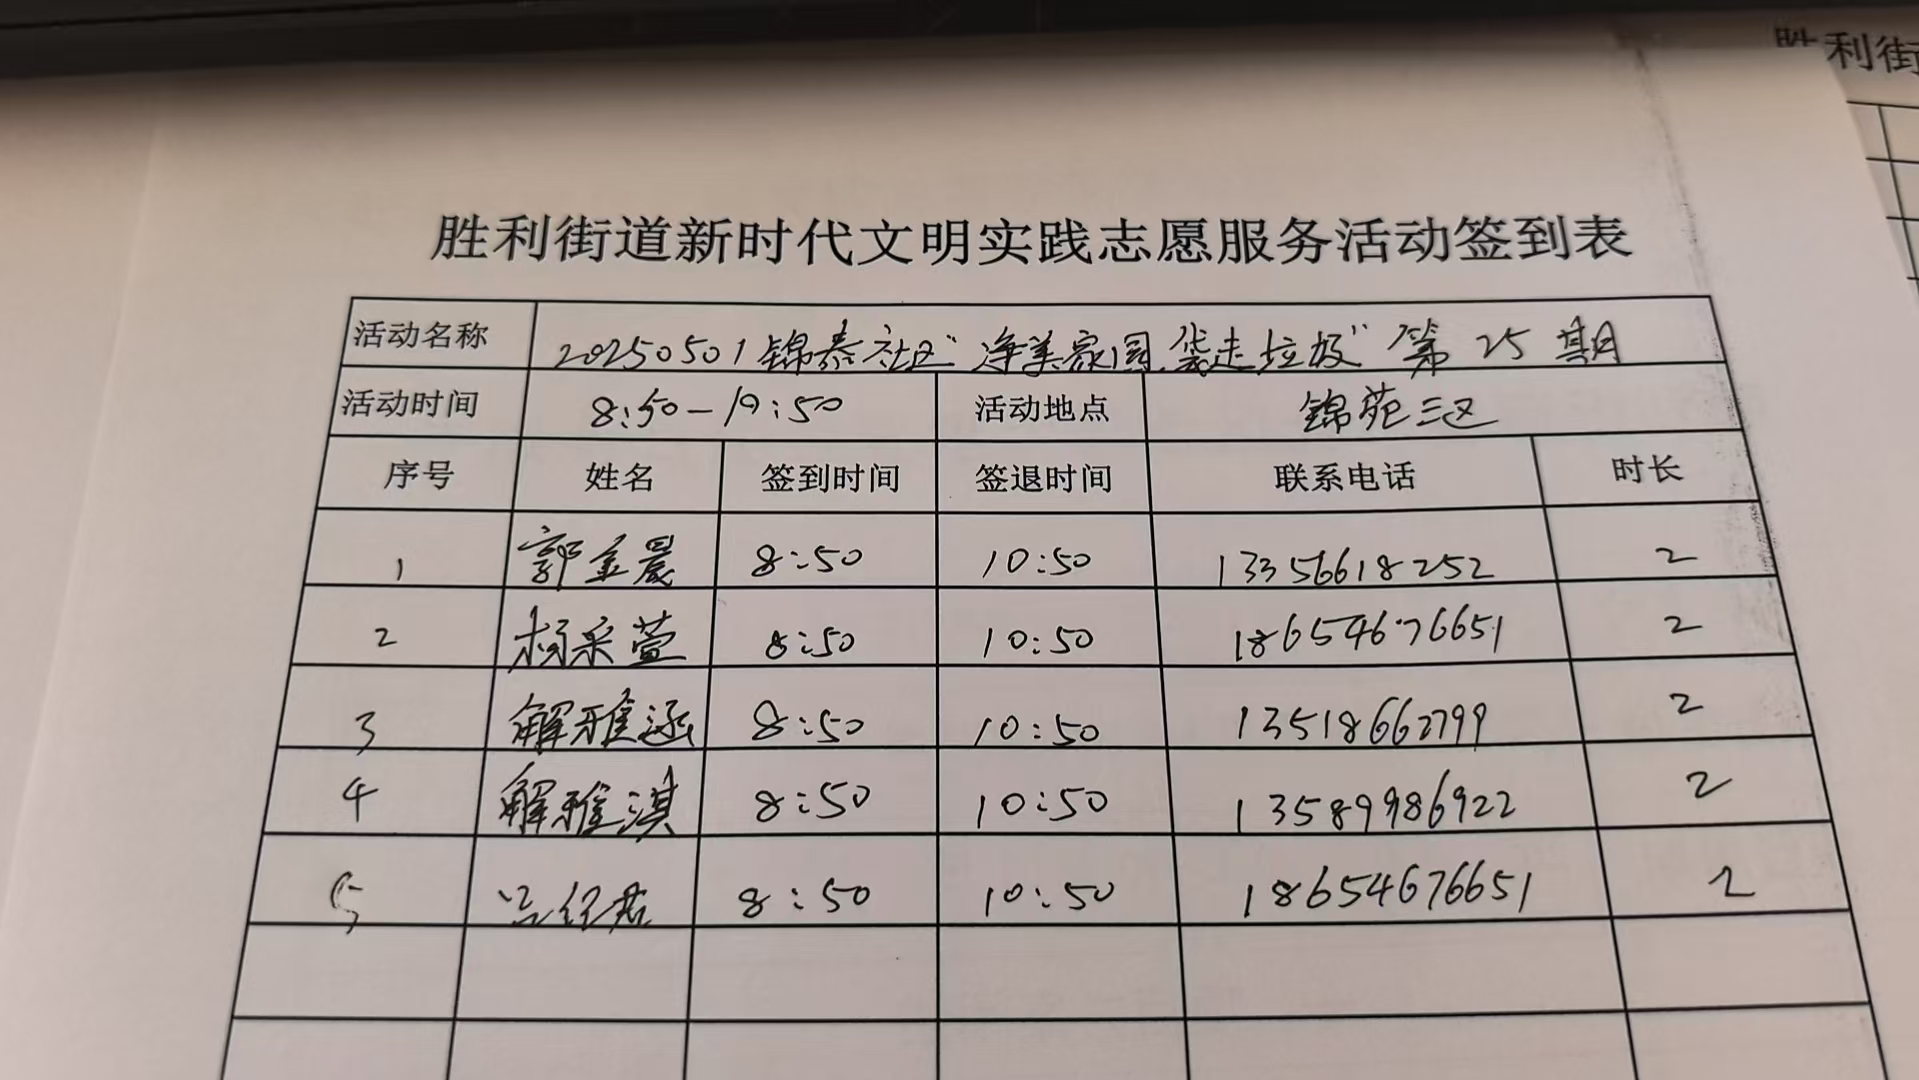 胜利街
胜利街道新时代文明实践志愿服务活动签到表
活动名称 20250501锦泰社区“净美家园,袋走垃圾”第25期
活动时间 8:50-19:50 活动地点 锦苑三区
序号 姓名 签到时间 签退时间 联系电话 时长
1 郭金晨 8:50 10:50 13356618252 2
2 杨采萱 8:50 10:50 18654676651 2
3 解雅涵 8:50 10:50 13518662799 2
4 解雅淇 8:50 10:50 13589986922 2
5 8:50 10:50 18654676651 2